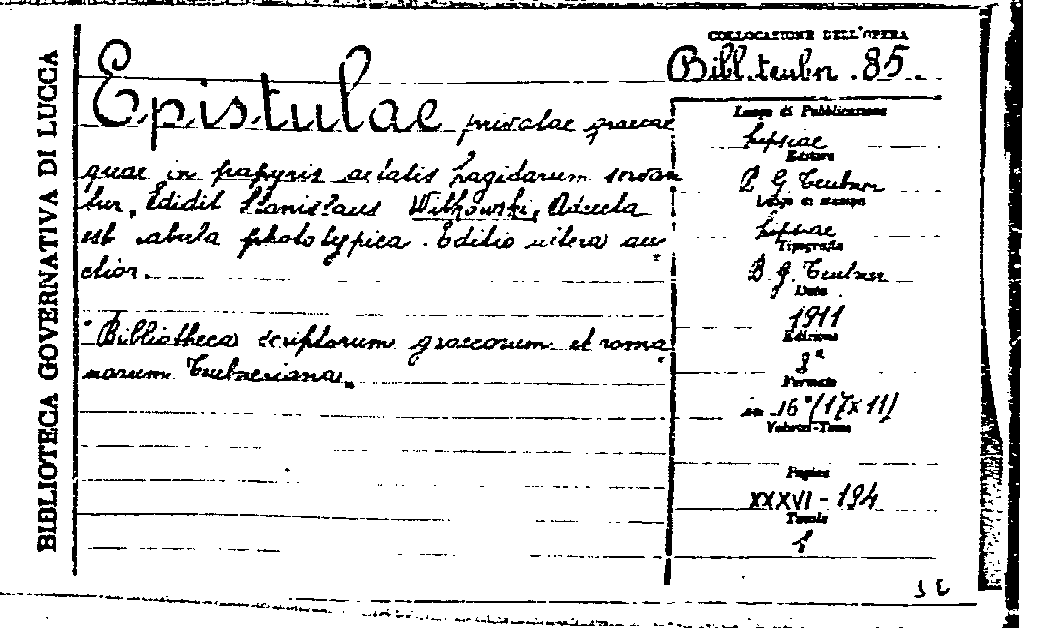 BIBLIOTECA GOVERNATIVA DI LUCCA
Epistulae privatae graecae
quae in papyris aetatis Lagidarum servan
tur. Edidit Stanislaus Witkowski. Adiecta
est tabula phototypica. Editio altera au
ctior.
"Bibliotheca scriptorum graecorum et roma
norum Teubneriana„
COLLOCAZIONE DELL'OPERA
Bibl. teubn. 85.
Luogo di Pubblicazione
Lipsiae
Editore
B. G. Teubner
Luogo di stampa
Lipsiae
Tipografia
B. G. Teubner
Data
1911
Edizione
2ª
Formato
in 16° (17x11)
Volumi-Tomi
Pagine
XXXVI - 194
Tavole
1